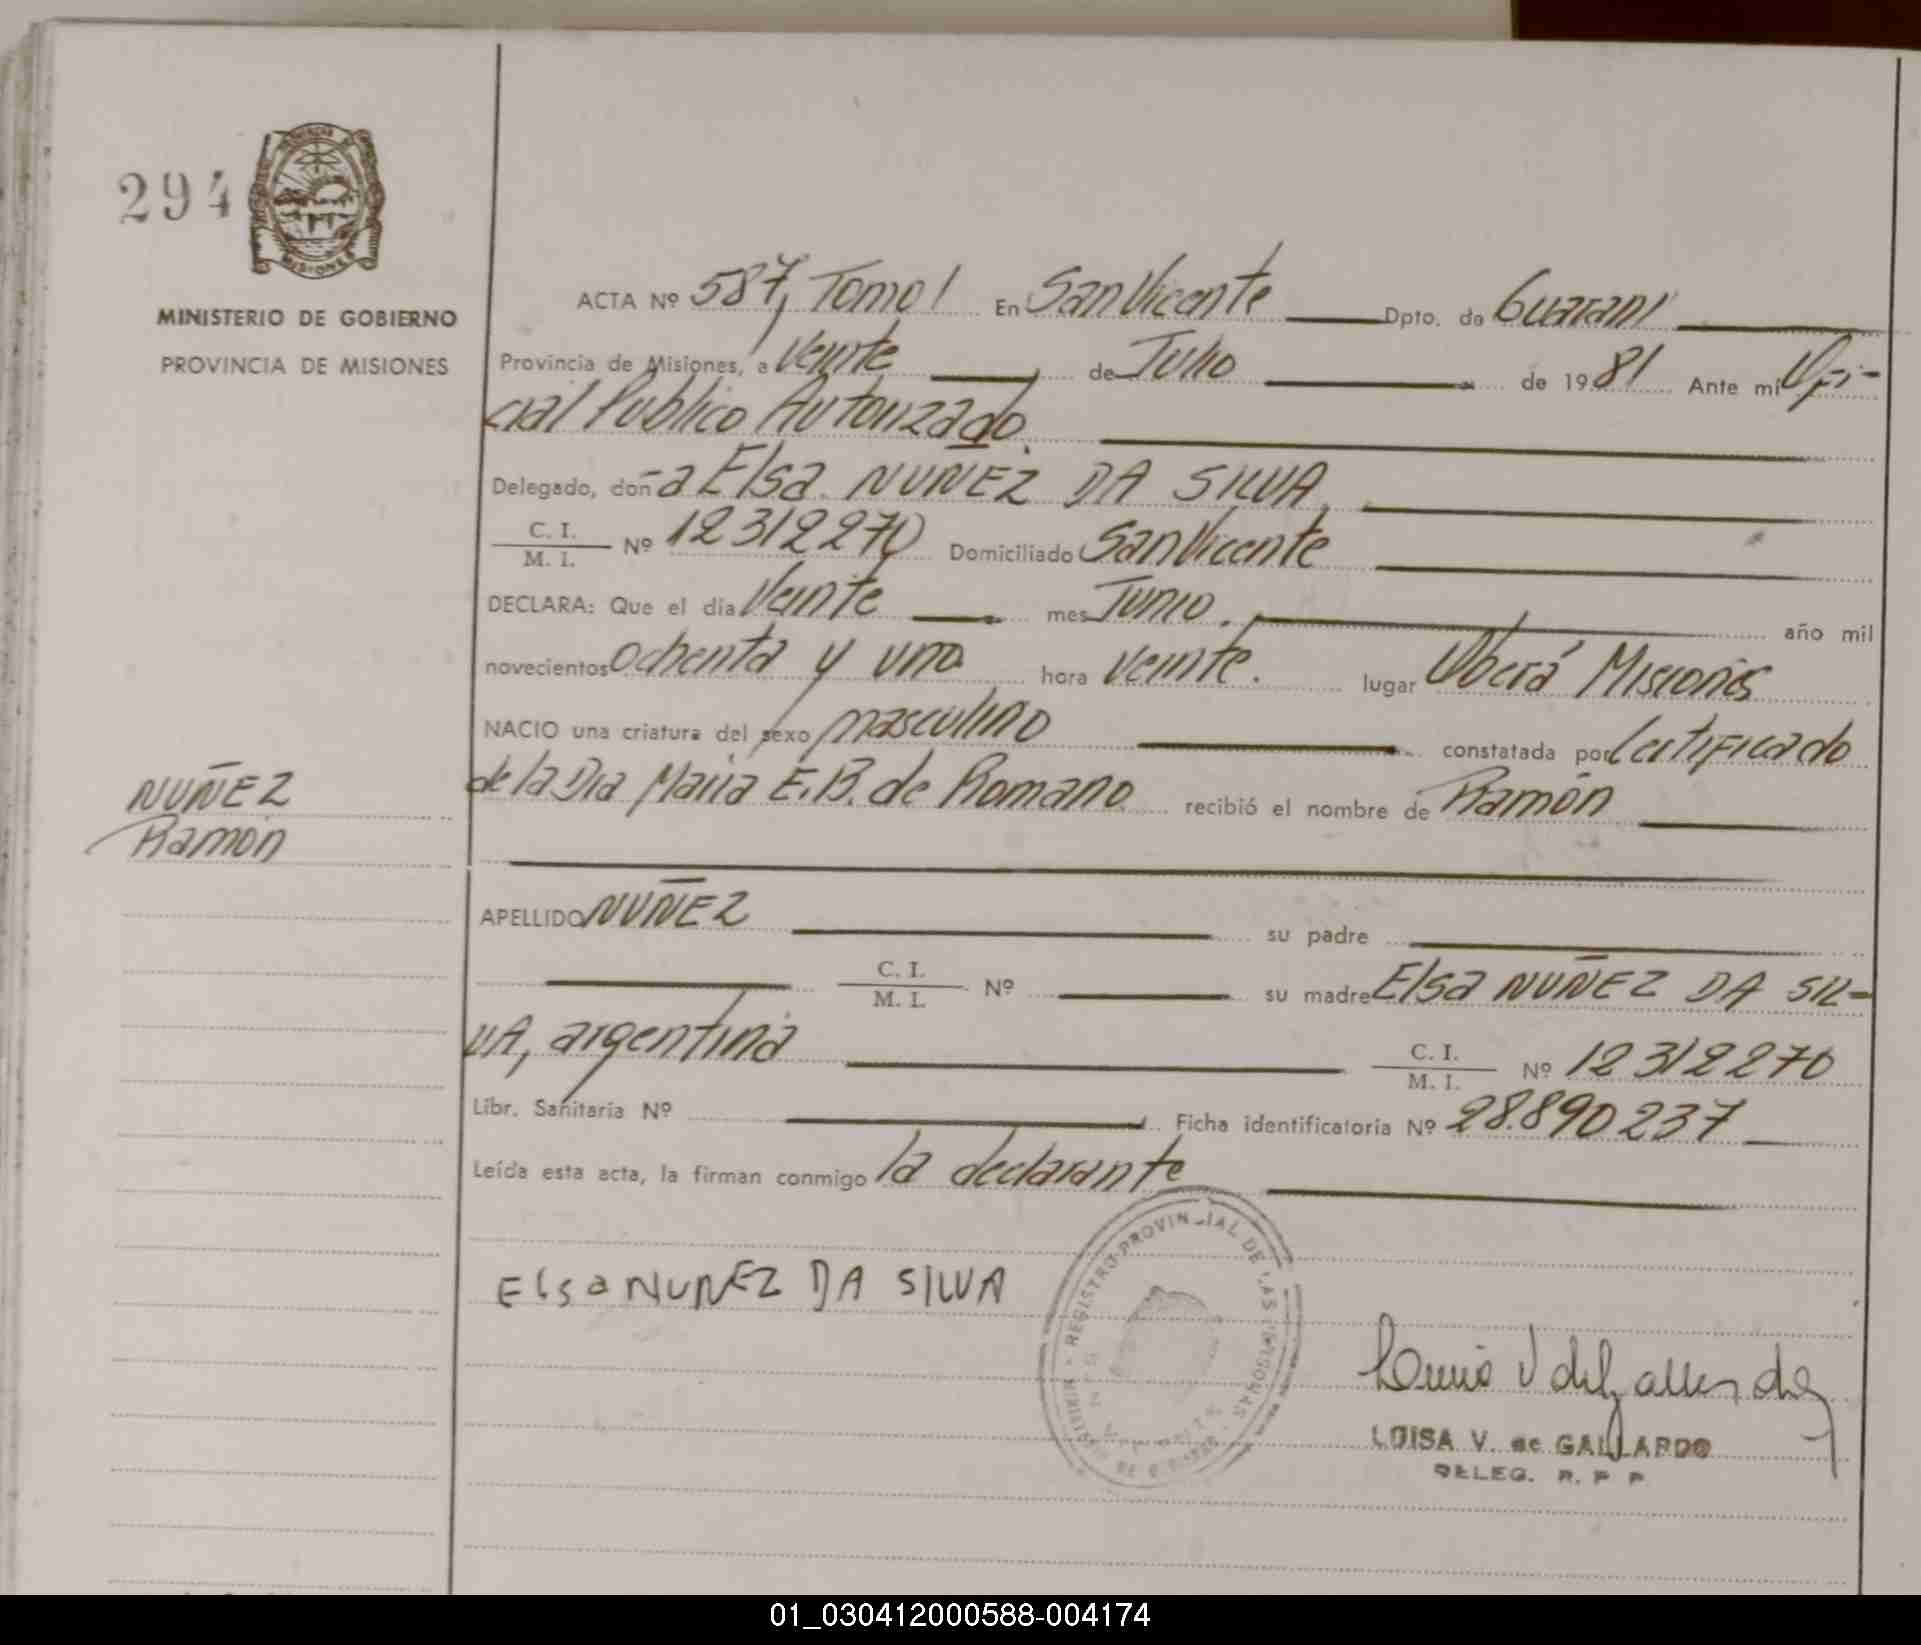 294
MISIONES
MINISTERIO DE GOBIERNO
PROVINCIA DE MISIONES
ACTA Nº 587, Tomo I En San Vicente Dpto. de Guaraní
Provincia de Misiones, a Veinte de Julio de 1981 Ante mi Ofi-
cial Publico Autorizado.
Delegado, doña Elsa NUÑEZ DA SILVA
C. I.
M. I. Nº 12312270 Domiciliado San Vicente
DECLARA: Que el dia Veinte mes Junio. año mil
novecientos ochenta y uno hora veinte. lugar Oberá Misiones
NACIO una criatura del sexo masculino constatada por Certificado
de la Dra Maria E. B. de Romano recibió el nombre de Ramón
NUÑEZ
Ramón
APELLIDO NUÑEZ su padre
C. I.
M. I. Nº su madre Elsa NUÑEZ DA SIL-
VA, argentina C. I.
M. I. Nº 12312270
Libr. Sanitaria Nº Ficha identificatoria Nº 28.890237
Leída esta acta, la firman conmigo la declarante
REGISTRO PROVINCIAL DE LAS PERSONAS
Elsa NUÑEZ DA SILVA
LUISA V. de GALLARDO
DELEG. R. P. P.
01_030412000588-004174